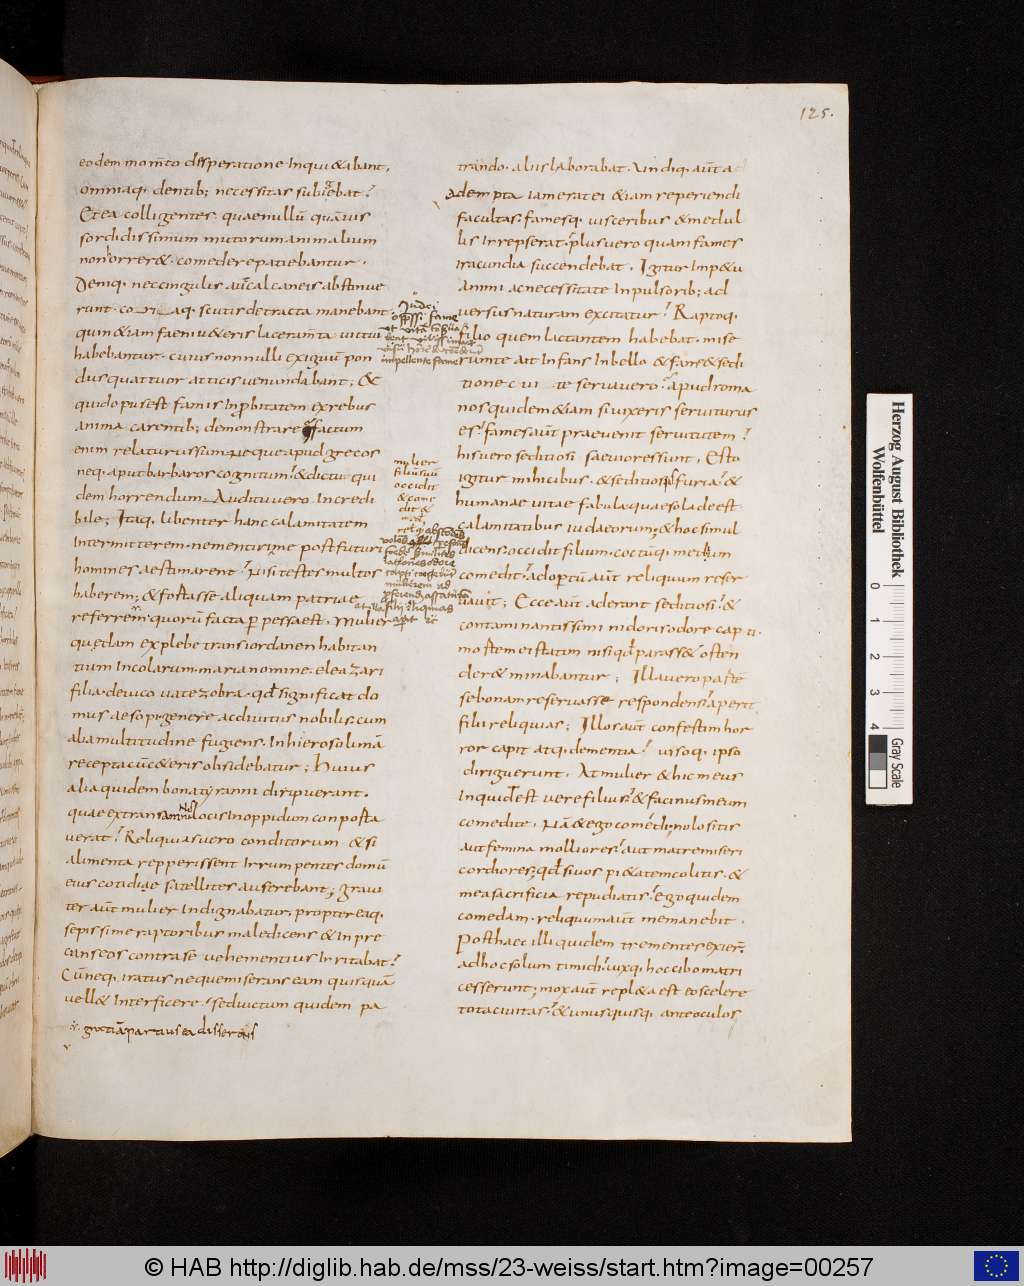 125.
eodem momto desperatione Inqui&abant,
omniaq. dentib; necessitas subiebat
Et ea colligentes quae nullu quauis
sordidissimum mutorum animalium
non horrer& comedere patiebantur.
Deniq. nec cingulis aut calcaneis abstinue
runt. coriaq. scutis detracta manebant
quin &iam faeni u&eris laceramta victui
habebantur. cuius nonnulli exiguu pon
dus quattuor atticis uenundabant; &
quid opus est famis Inpbitatem ex rebus
anima carentib; demonstrare factum
enim relaturus sum neque apud grecos
neq. aput barbaros cognitum & dictu qui
dem horrendum. Auditu uero Incredi
bile; Itaq. libenter hanc calamitatem
Intermitterem. ne mentiri me post futuri
homines aestimarent. Nisi testes multos
haberem; & fortasse aliquam patriae
referrem quoru facta p pessa est. Mulier
quedam ex plebe trans iordanen habitan
tium Incolarum. maria nomine. eleazari
filia. de uico uatezobra. qd significat do
mus aesopi. genere ac diuitiis nobilis. cum
alia multitudine fugiens. In hierosolima
recepta cu c&eris obsidebatur; Huius
alia quidem bona tyranni diripuerant.
quae ex trans locis In oppidum conporta
uerat. Reliquias uero conditorum & si
alimenta repperissent Irrumpentes domu
eius cotidiae satellites auferebant; Graui
ter aut mulier Indignabatur. propterea q.
sepissime raptoribus maledicens & In pre
cans eos contra se uehementius Irritabat
Cu neq. iratus neque miserans eam quisqua
uell& Interficere sed uictum quidem pa
Iudei
fame
impellente fame
mulier
filiu suu
occidit
& come
dit &
trando. aliis laborabat. Vndiq. aut a
dempta iam erat ei &iam reperiendi
facultas. famesq. uisceribus & medul
lis Irrepserat plus uero quam fames
Iracundia succendebat. Igitur Imp&u
animi ac necessitate Inpulsorib; ad
uersus naturam excitatur. Raptoq.
filio quem lactantem habebat. mise
rum te ait Infans In bello & fame & sedi
tione cui te seruauero. apud roma
nos quidem &iam si uixeris seruiturus
es. fames aut praeuenit seruitutem
his uero seditiosi saeuiores sunt. Esto
igitur mihi cibus. & seditiosis furia. &
humanae uitae fabula quae sola deest
calamitatibus iudaeorum; & hoc simul
dicens. occidit filium. coctuq. medium
comedit. adoptu aut reliquum reser
uauit; Ecce aut aderant seditiosi. &
contaminantissimi nidoris odore capti.
mortem ei statim nisi qd parass& osten
der& minabantur; Illa uero parte
se bonam reseruasse respondens. aperit
filii reliquias; Illos aut confestim hor
ror capit atq. dementia. uisoq. ipso
diriguerunt. At mulier & hic meus
Inquid est uere filius. & facinus meum
comedite. Na & ego comedi. nolo sitis
aut femina molliores. aut matre miseri
cordiores; qd si uos pi&atem colitis. &
mea sacrificia repudiatis. ego quidem
comedam. reliquum aut me manebit.
Post haec illi quidem trementes exier
ad hoc solum timidi. uixq. hoc cibo matri
cesserunt; mox aut repl&a est eo scelere
tota ciuitas. & unusquisq. ante oculos
Herzog August Bibliothek
Wolfenbüttel
0 1 2 3 4
Gray Scale
© HAB http://diglib.hab.de/mss/23-weiss/start.htm?image=00257